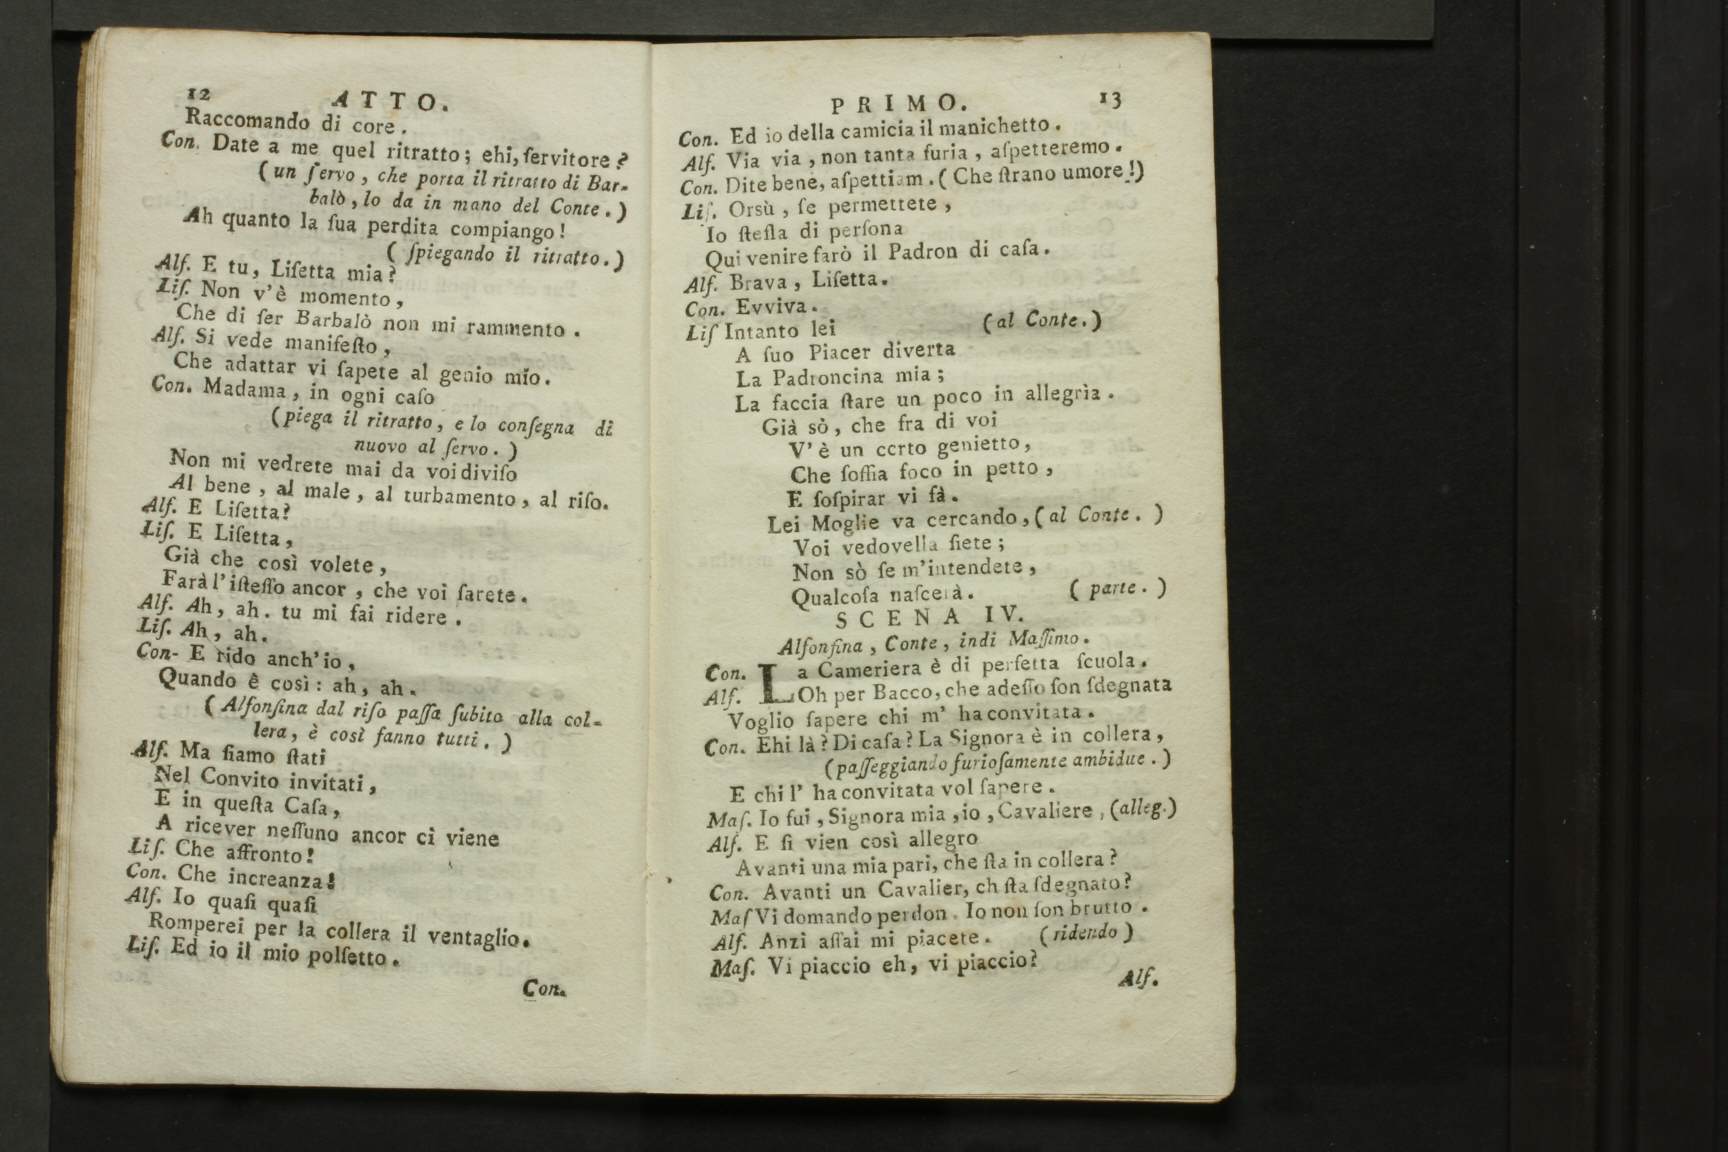 12 ATTO.
Raccomando di core.
Con. Date a me quel ritratto; ehi, ſervitore?
(un ſervo, che porta il ritratto di Bar-
balò, lo da in mano del Conte.)
Ah quanto la ſua perdita compiango!
(ſpiegando il ritratto.)
Alſ. E tu, Liſetta mia?
Liſ. Non v'è momento,
Che di ſer Barbalò non mi rammento.
Alſ. Si vede manifeſto,
Che adattar vi ſapete al genio mio.
Con. Madama, in ogni caſo
(piega il ritratto, e lo conſegna di
nuovo al ſervo.)
Non mi vedrete mai da voi diviſo
Al bene, al male, al turbamento, al riſo.
Alſ. E Liſetta?
Liſ. E Liſetta,
Già che così volete,
Farà l'iſteſſo ancor, che voi ſarete.
Alſ. Ah, ah. tu mi fai ridere.
Liſ. Ah, ah.
Con- E rido anch'io,
Quando è così: ah, ah.
(Alfonſina dal riſo paſſa ſubito alla col-
lera, è così fanno tutti.)
Alſ. Ma ſiamo ſtati
Nel Convito invitati,
E in queſta Caſa,
A ricever neſſuno ancor ci viene
Liſ. Che affronto!
Con. Che increanza!
Alſ. Io quaſi quaſi
Romperei per la collera il ventaglio.
Liſ. Ed io il mio polſetto.
Con.
PRIMO. 13
Con. Ed io della camicia il manichetto.
Alſ. Via via, non tanta furia, aſpetteremo.
Con. Dite bene, aſpettiam. (Che ſtrano umore!)
Liſ. Orsù, ſe permettete,
Io ſteſſa di perſona
Qui venire farò il Padron di caſa.
Alſ. Brava, Liſetta.
Con. Evviva.
Liſ Intanto lei (al Conte.)
A ſuo Piacer diverta
La Padroncina mia;
La faccia ſtare un poco in allegrìa.
Già sò, che fra di voi
V'è un certo genietto,
Che ſoffia foco in petto,
E ſoſpirar vi fà.
Lei Moglie va cercando, (al Conte.)
Voi vedovella ſiete;
Non sò ſe m'intendete,
Qualcoſa naſcerà. (parte.)
SCENA IV.
Alfonſina, Conte, indi Maſſimo.
Con. La Cameriera è di perfetta ſcuola.
Alſ. Oh per Bacco, che adeſſo ſon ſdegnata
Voglio ſapere chi m' ha convitata.
Con. Ehi là? Di caſa? La Signora è in collera,
(paſſeggiando furioſamente ambidue.)
E chi l' ha convitata vol ſapere.
Maſ. Io fui, Signora mia, io, Cavaliere, (alleg.)
Alſ. E ſi vien così allegro
Avanti una mia pari, che ſta in collera?
Con. Avanti un Cavalier, ch ſta ſdegnato?
Maſ Vi domando perdon. Io non ſon brutto.
Alſ. Anzi aſſai mi piacete. (ridendo)
Maſ. Vi piaccio eh, vi piaccio?
Alſ.